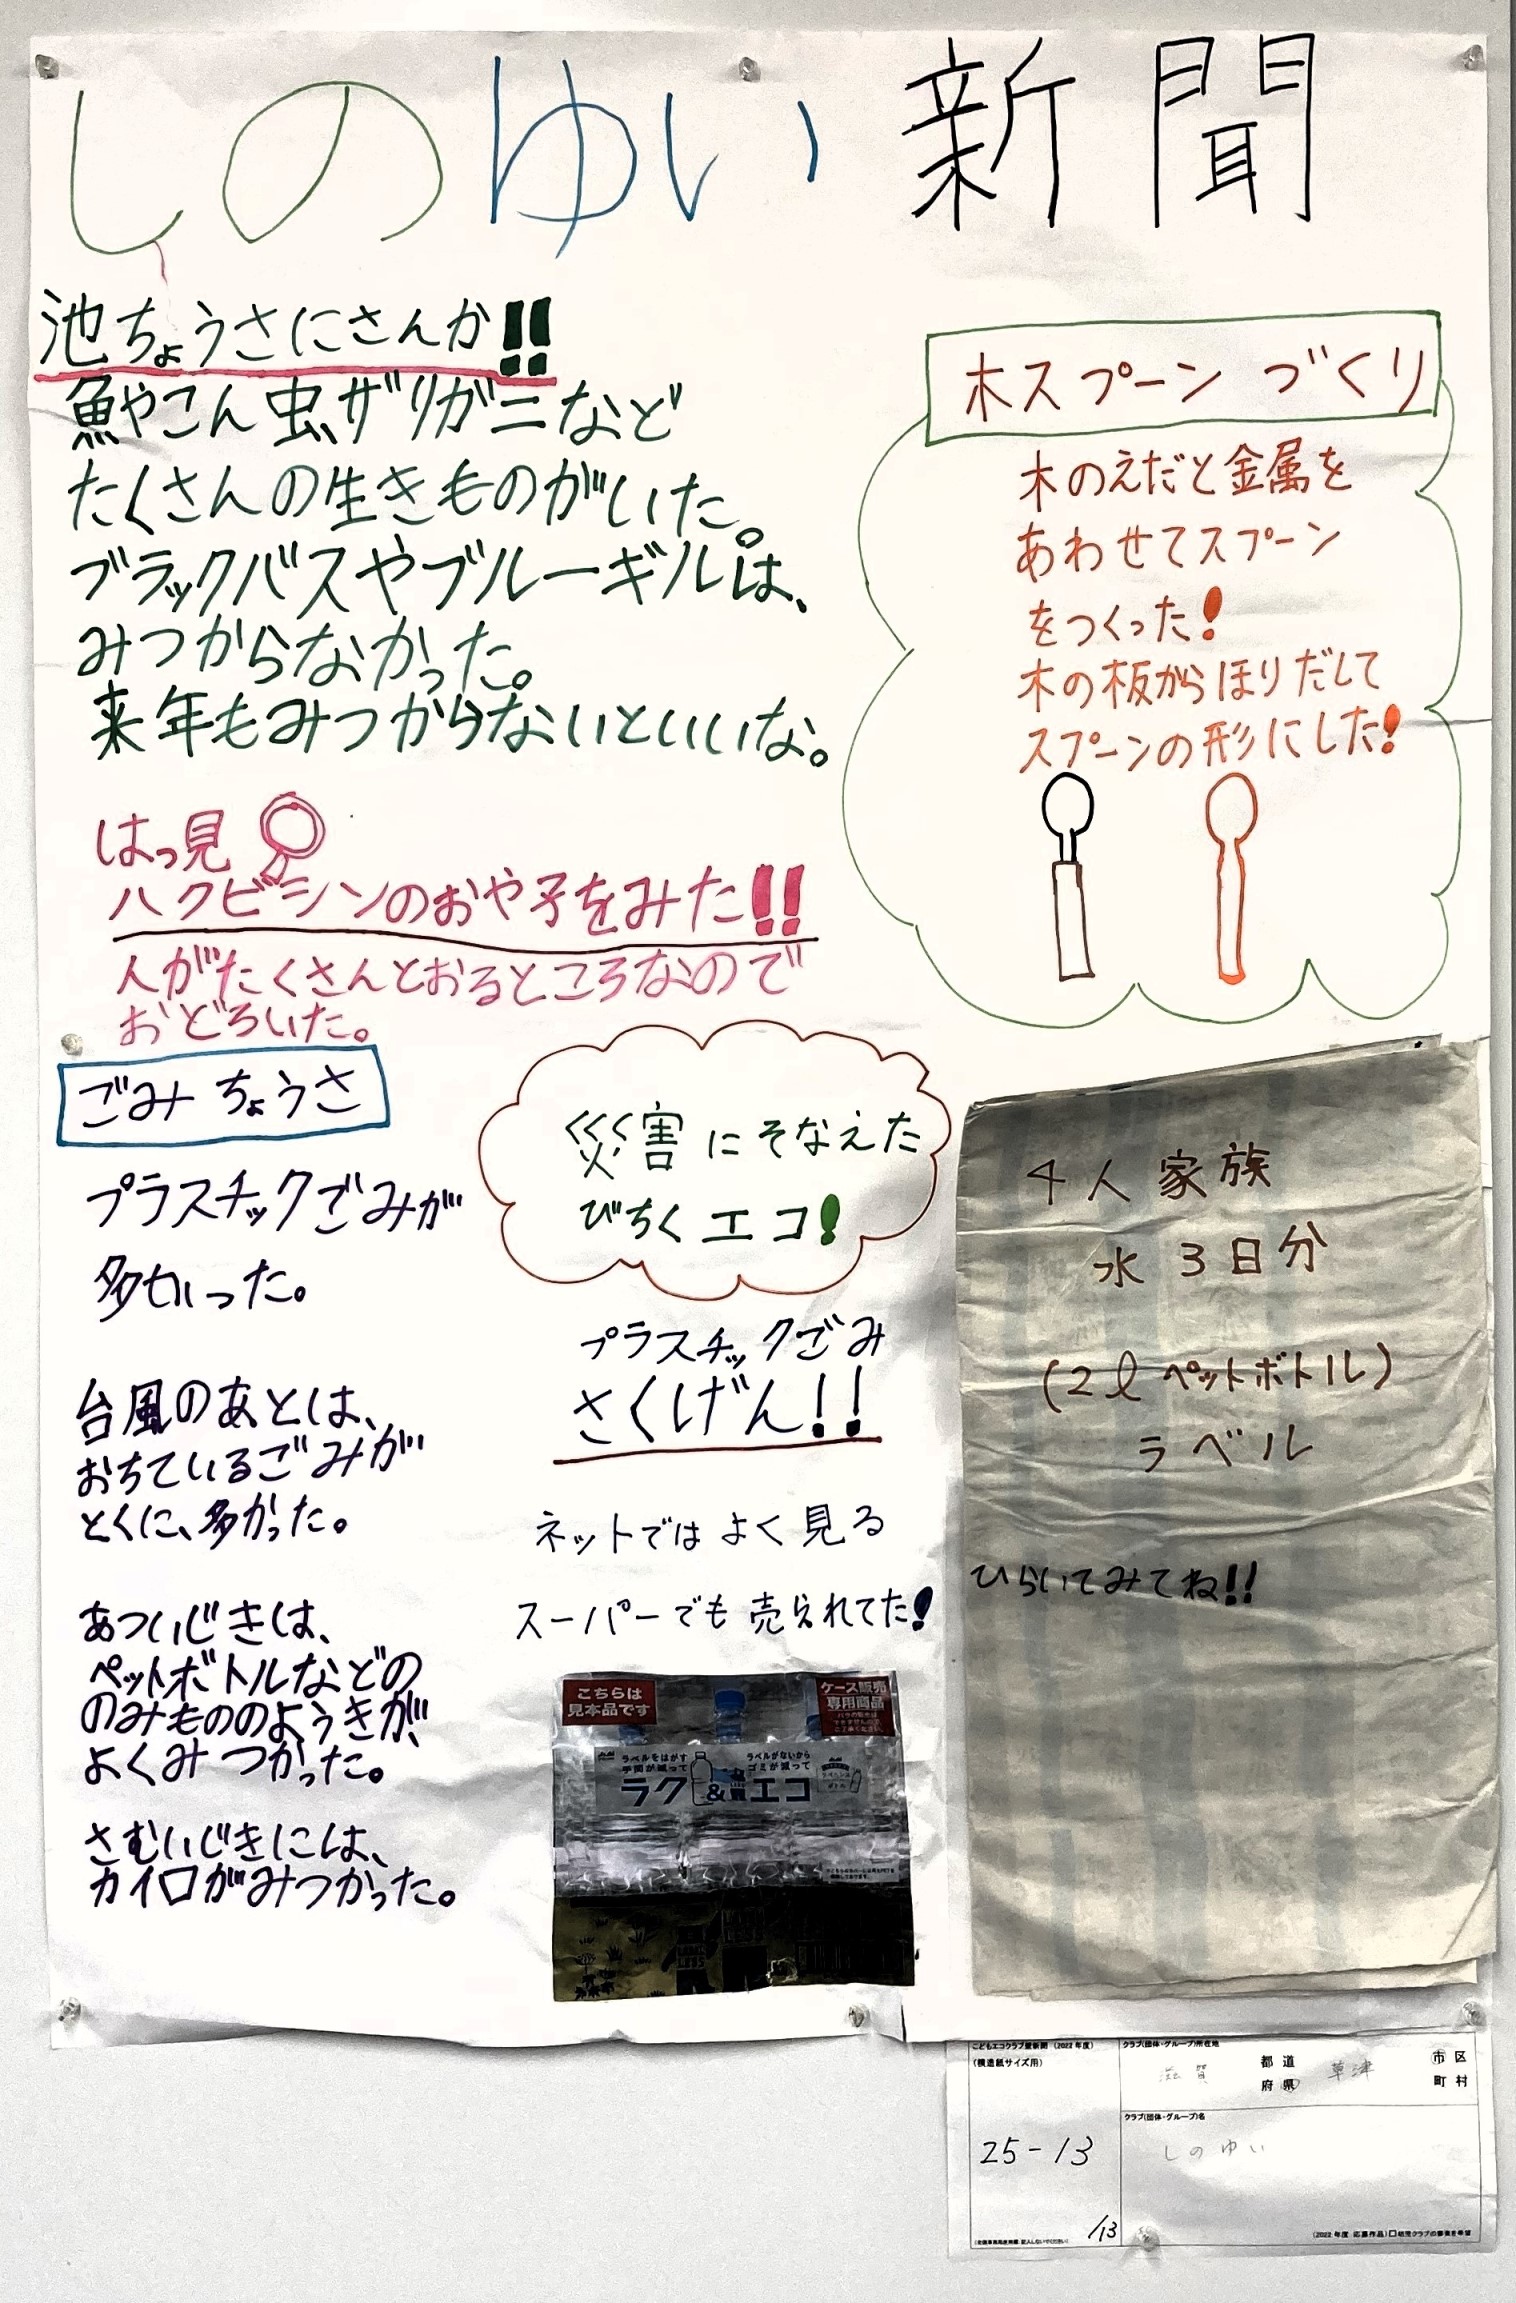 しのゆい新聞
池ちょうさにさんか!!
魚やこん虫、ザリガニなど
たくさんの生きものがいた。
ブラックバスやブルーギルは、
みつからなかった。
来年もみつからないといいな。
はっ見
ハクビシンのおや子をみた!!
人がたくさんとおるところなので
おどろいた。
木スプーンづくり
木のえだと金属を
あわせてスプーン
をつくった!
木の板からほりだして
スプーンの形にした!
ごみちょうさ
プラスチックごみが
多かった。
台風のあとは、
おちているごみが
とくに、多かった。
あついじきは、
ペットボトルなどの
のみもののようきが、
よくみつかった。
さむいじきには、
カイロがみつかった。
災害にそなえた
びちくエコ!
プラスチックごみ
さくげん!!
ネットではよく見る
スーパーでも売られてた!
こちらは
見本品です
ケース販売
専用商品
ラベルをはがす
手間が減って
ラベルがないから
ゴミが減って
ラク&エコ
4人家族
水3日分
(2ℓペットボトル)
ラベル
ひらいてみてね!!
こどもエコクラブ壁新聞(2022年度)
(模造紙サイズ用)
25-13
/13
クラブ(団体・グループ)所在地
滋賀 都道府県 草津 市区町村
クラブ(団体・グループ)名
しのゆい
(2022年度 応募作品)□幼児クラブの審査を希望